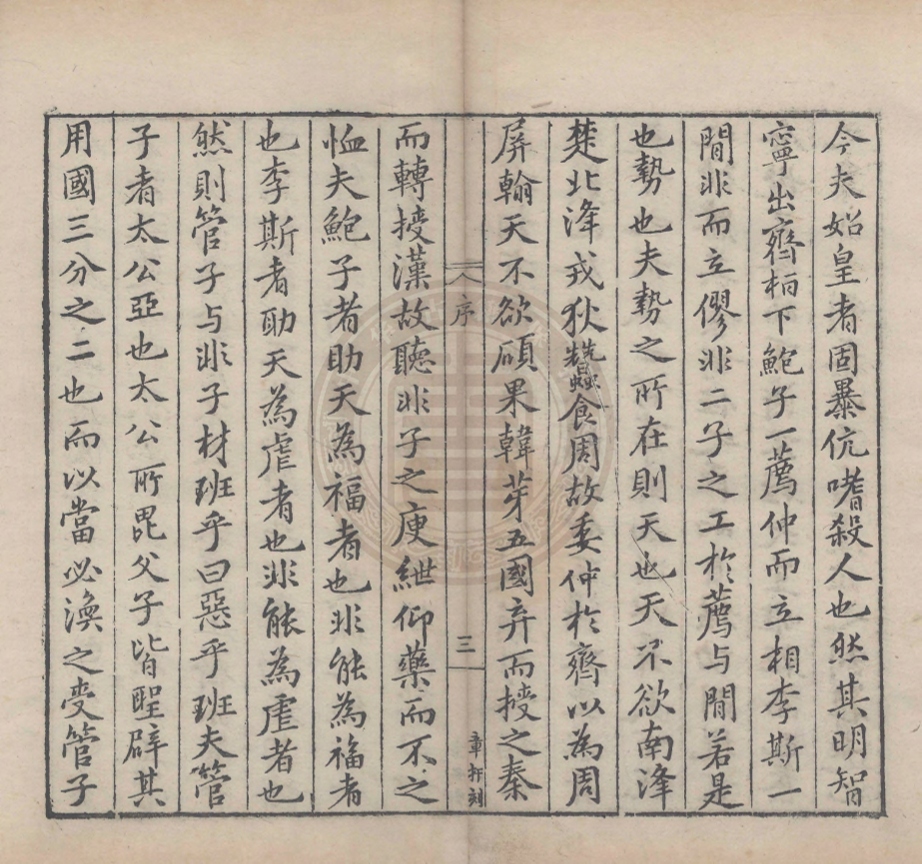 今夫始皇者固暴伉嗜殺人也然其明智
寧出齊桓下鮑子一薦仲而立相李斯一
間非而立僇非二子之工於薦与間若是
也勢也夫勢之所在則天也天不欲南洚
楚北洚戎狄蠶食周故委仲於齊以為周
屏翰天不欲碩果韓芽五國弃而授之秦
序
三
章扞刻
而轉授漢故聽非子之庾紲仰藥而不之
恤夫鮑子者助天為福者也非能為福者
也李斯者助天為虐者也非能為虐者也
然則管子与非子材班乎曰惡乎班夫管
子者太公亞也太公所毘父子皆聖辟其
用國三分之二也而以當必渙之受管子